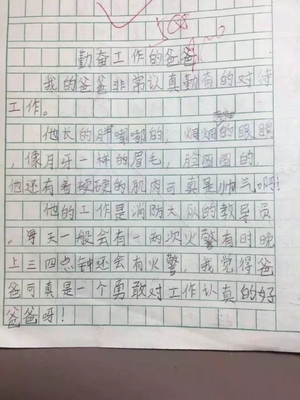 勤奋工作的爸爸
我的爸爸非常认真勤奋的对待
工作。
他长的胖嘟嘟的,炯炯的眼睛
,像月牙一样的眉毛,脸圆圆的,
他还有着硬硬的肌肉可真是帅气啊!
他的工作是消防大队的教导员
,每天一般会有一两次火警有时晚
上三四点钟还会有火警,我觉得爸
爸可真是一个勇敢对工作认真的好
爸爸呀!